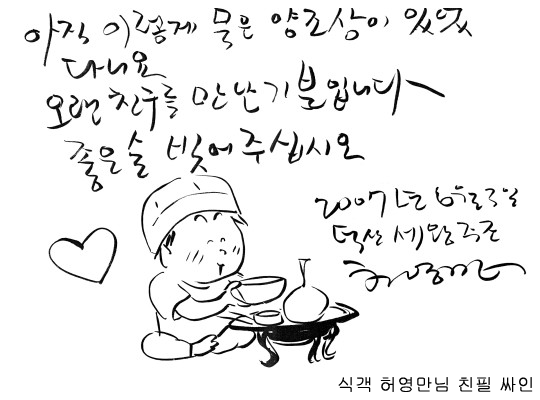 아직 이렇게 묵은 양조상이 있었
다니요
오랜 친구를 만난 기분입니다
좋은 술 빚어 주십시오
2007년 6월 3일
덕산 세왕주조
허영만
식객 허영만님 친필 싸인